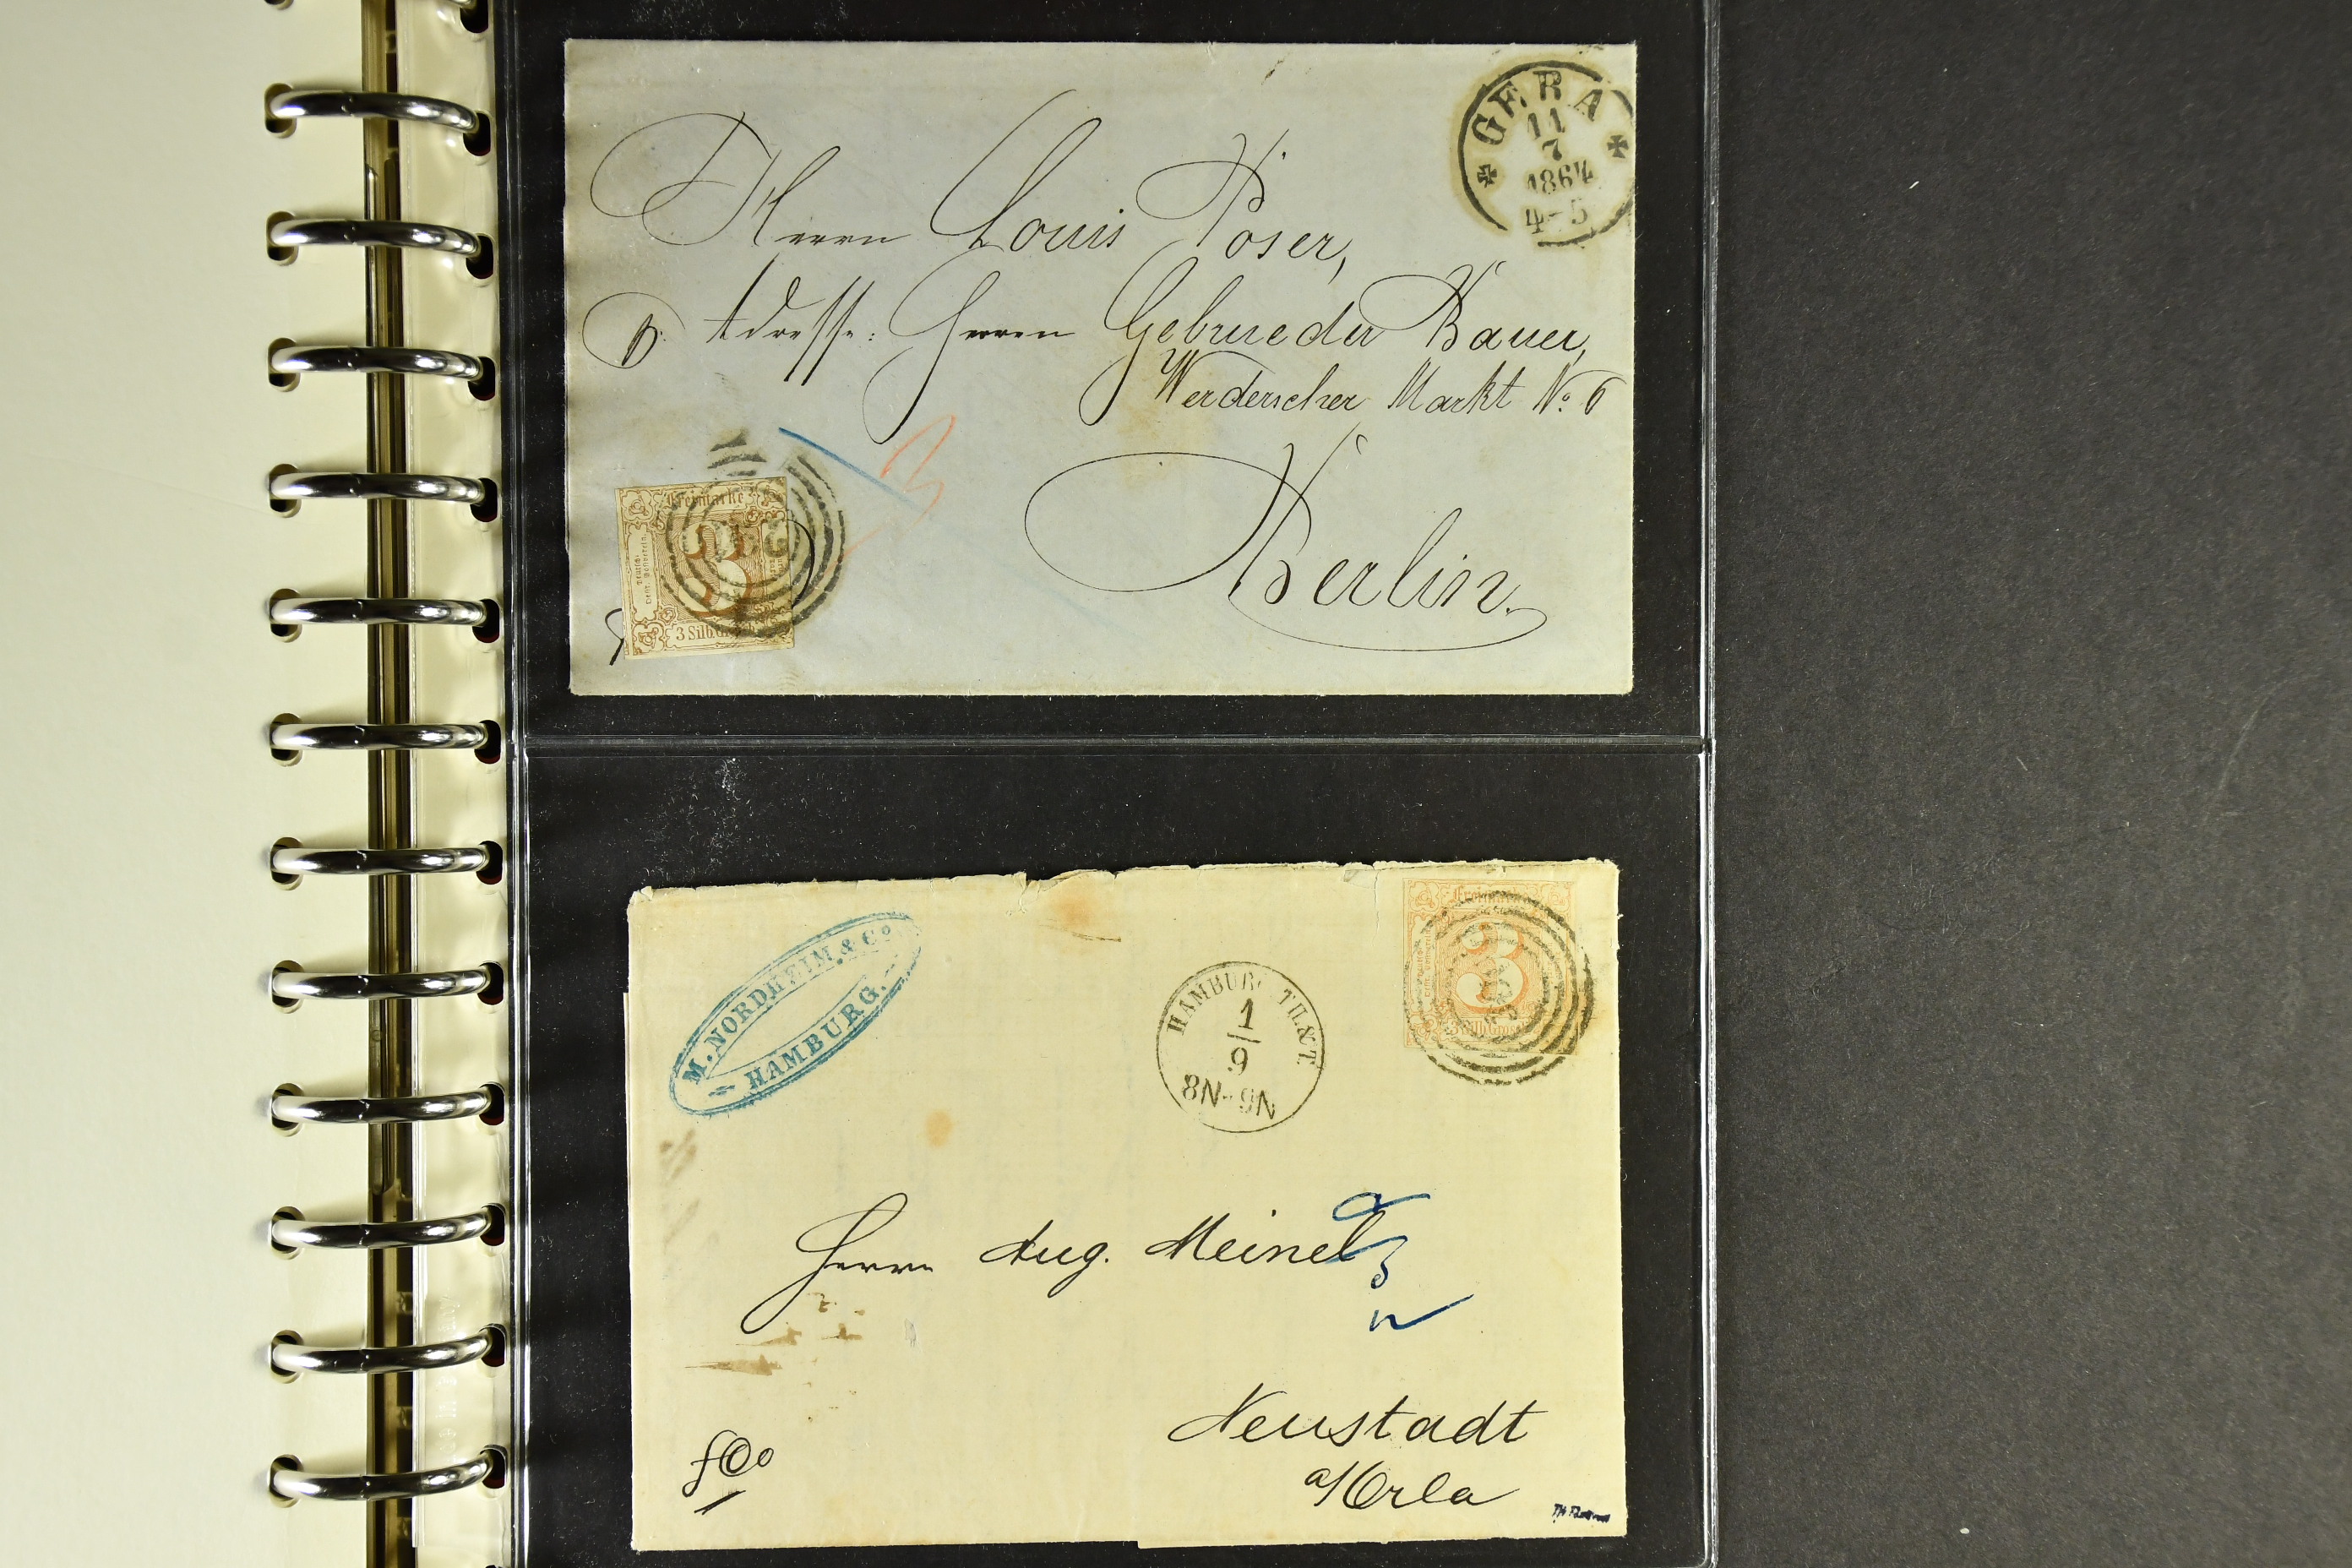 GERA
11
7
1864
4-5
Herrn Louis Poser,
p. Adresse: Herren Gebrueder Bauer,
Werderscher Markt No. 6
Berlin.
Freimarke
3 Silb.Gr
M. NORDHEIM & Co.
HAMBURG.
HAMBURG TH.&T.
1
9
8N-9N
Freimarke
3
3 Silb. Grosch
Herrn Aug. Meinel
3
Neustadt
a/Orla
fco